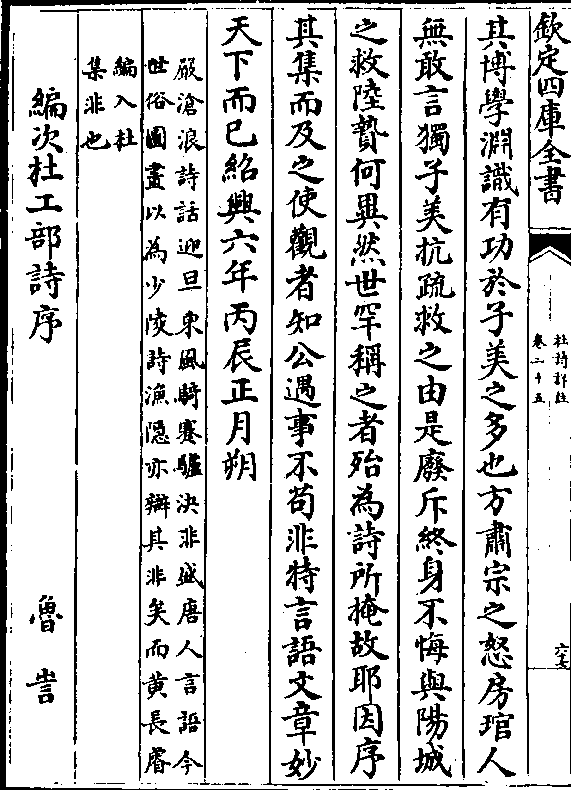 欽定四庫全書
杜詩詳註
卷二十五
六
其博學淵識有功於子美之多也方肅宗之怒房琯人
無敢言獨子美抗疏救之由是廢斥終身不悔與陽城
之救陸贄何異然世罕稱之者殆為詩所掩故耶因序
其集而及之使觀者知公遇事不苟非特言語文章妙
天下而已紹興六年丙辰正月朔
嚴滄浪詩話迎旦東風騎蹇驢決非盛唐人言語今
世俗圖畫以為少陵詩漁隱亦辯其非矣而黄長睿
編入杜
集非也
編次杜工部詩序
魯訔